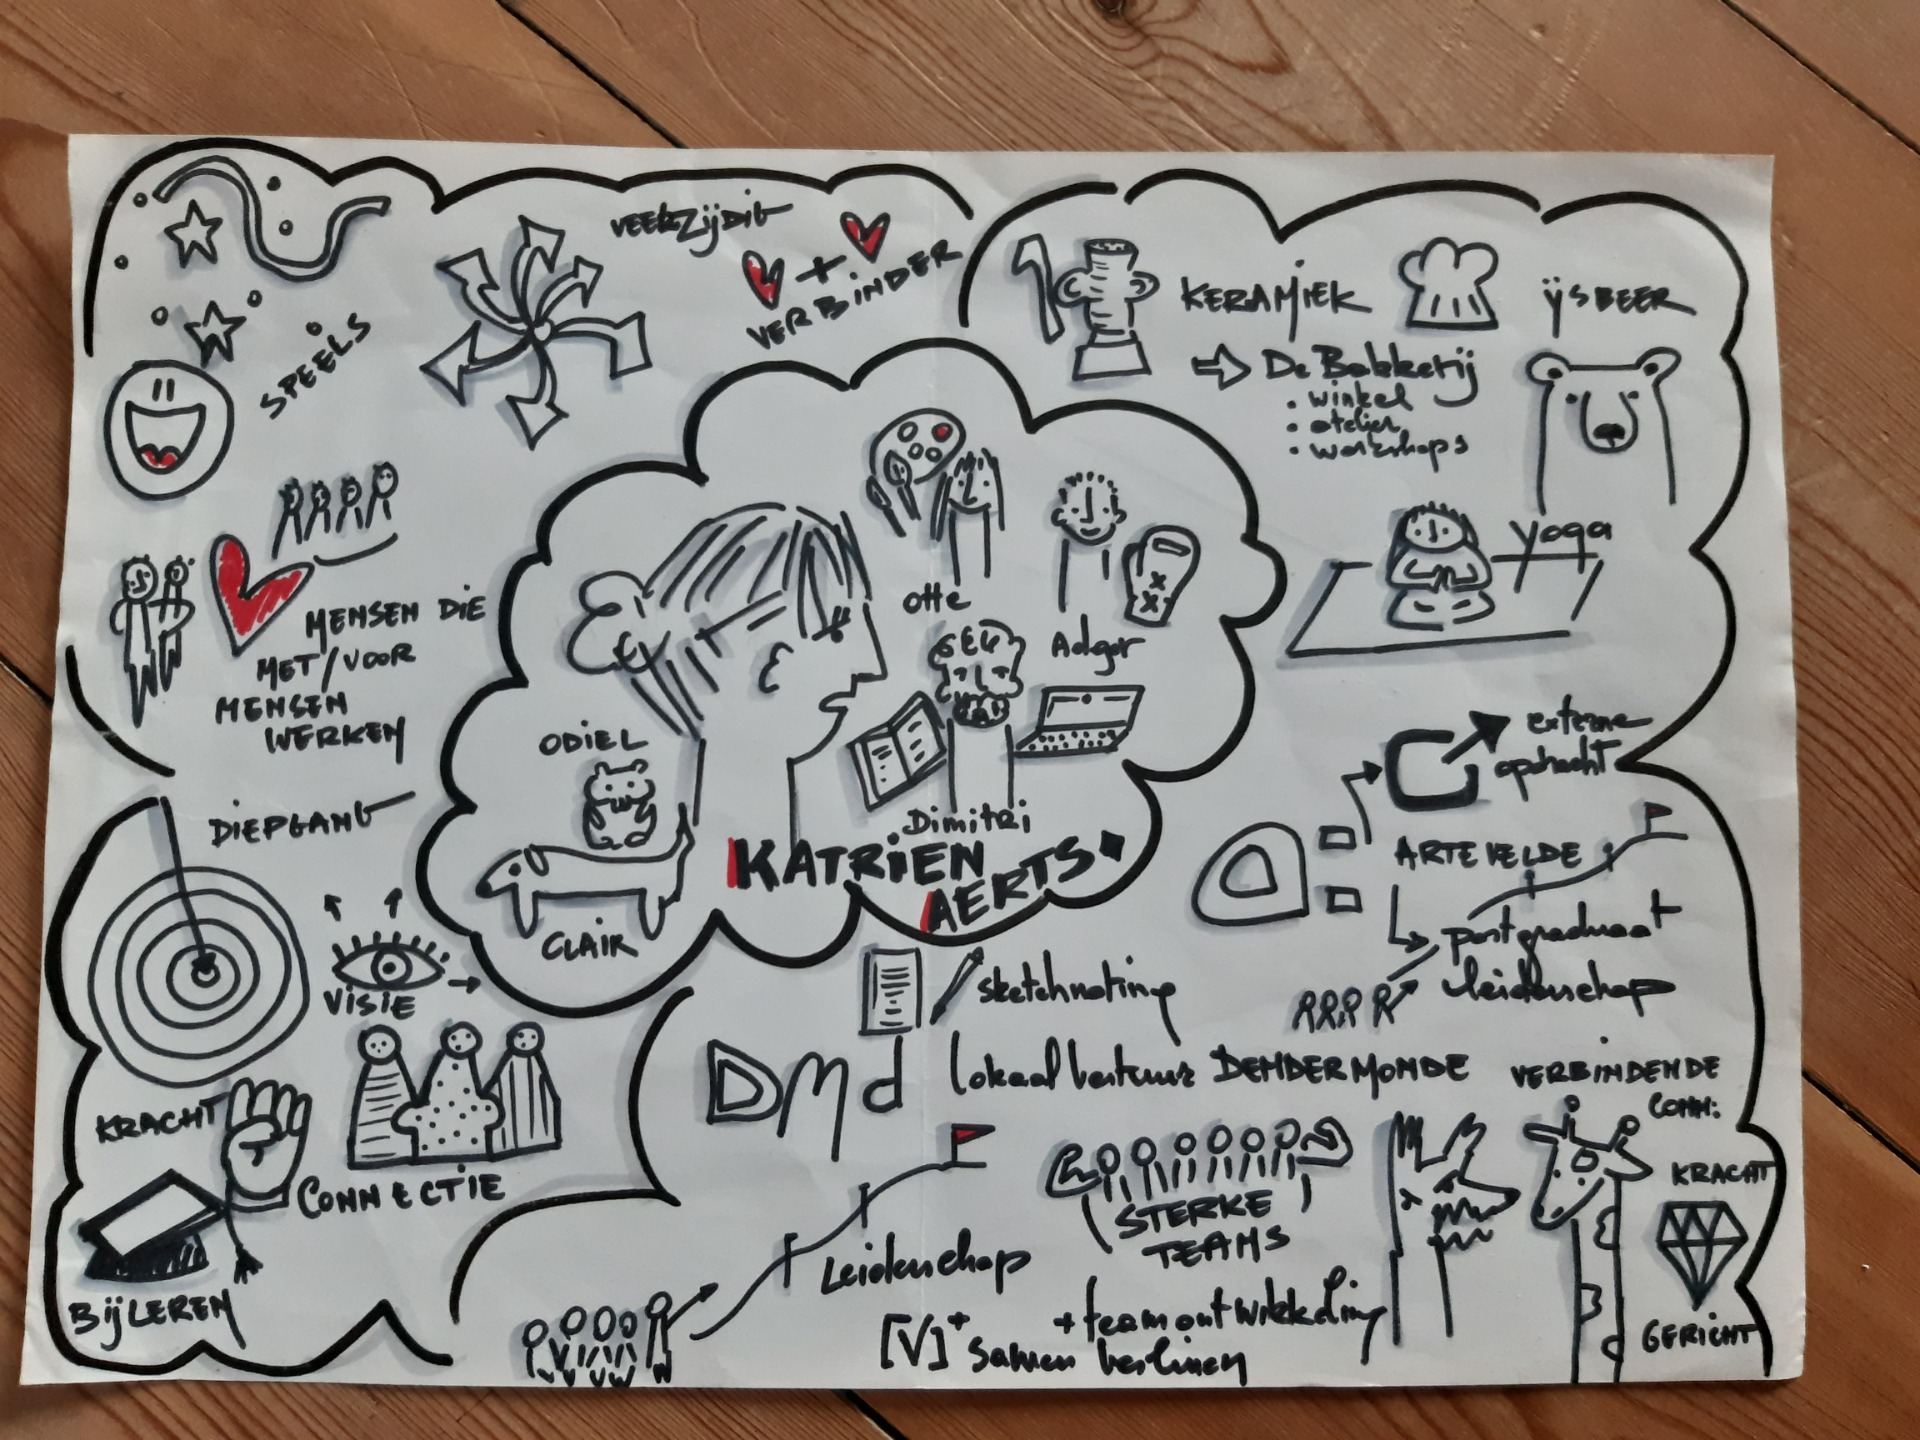 VEELZIJDIG
+
VERBINDER
SPEELS
MENSEN DIE
MET/VOOR
MENSEN
WERKEN
DIEPGANG
VISIE
KRACHT
CONNECTIE
BIJLEREN
KERAMIEK
De Bakkerij
• winkel
• atelier
• workshops
IJSBEER
yoga
Otte
Adgor
Dimitri
ODIEL
CLAIR
KATRIEN
AERTS
externe
opdracht
ARTEVELDE
postgraduaat
leiderschap
sketchnoting
DMd
lokaal bestuur DENDERMONDE
Leiderschap
STERKE
TEAMS
+ teamontwikkeling
[V]+
Samen beslissen
VERBINDENDE
COMM:
KRACHT
GERICHT